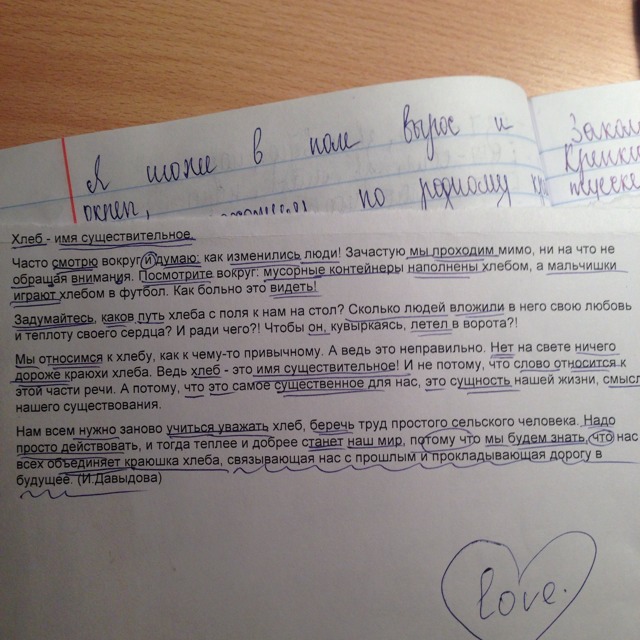 Я тоже в поле вырос и
окреп, по родному
Закал
Крепки
Хлеб - имя существительное.
Часто смотрю вокруг и думаю: как изменились люди! Зачастую мы проходим мимо, ни на что не
обращая внимания. Посмотрите вокруг: мусорные контейнеры наполнены хлебом, а мальчишки
играют хлебом в футбол. Как больно это видеть!
Задумайтесь, каков путь хлеба с поля к нам на стол? Сколько людей вложили в него свою любовь
и теплоту своего сердца? И ради чего?! Чтобы он, кувыркаясь, летел в ворота?!
Мы относимся к хлебу, как к чему-то привычному. А ведь это неправильно. Нет на свете ничего
дороже краюхи хлеба. Ведь хлеб - это имя существительное! И не потому, что слово относится к
этой части речи. А потому, что это самое существенное для нас, это сущность нашей жизни, смысл
нашего существования.
Нам всем нужно заново учиться уважать хлеб, беречь труд простого сельского человека. Надо
просто действовать, и тогда теплее и добрее станет наш мир, потому что мы будем знать, что нас
всех объединяет краюшка хлеба, связывающая нас с прошлым и прокладывающая дорогу в
будущее. (И.Давыдова)
love.